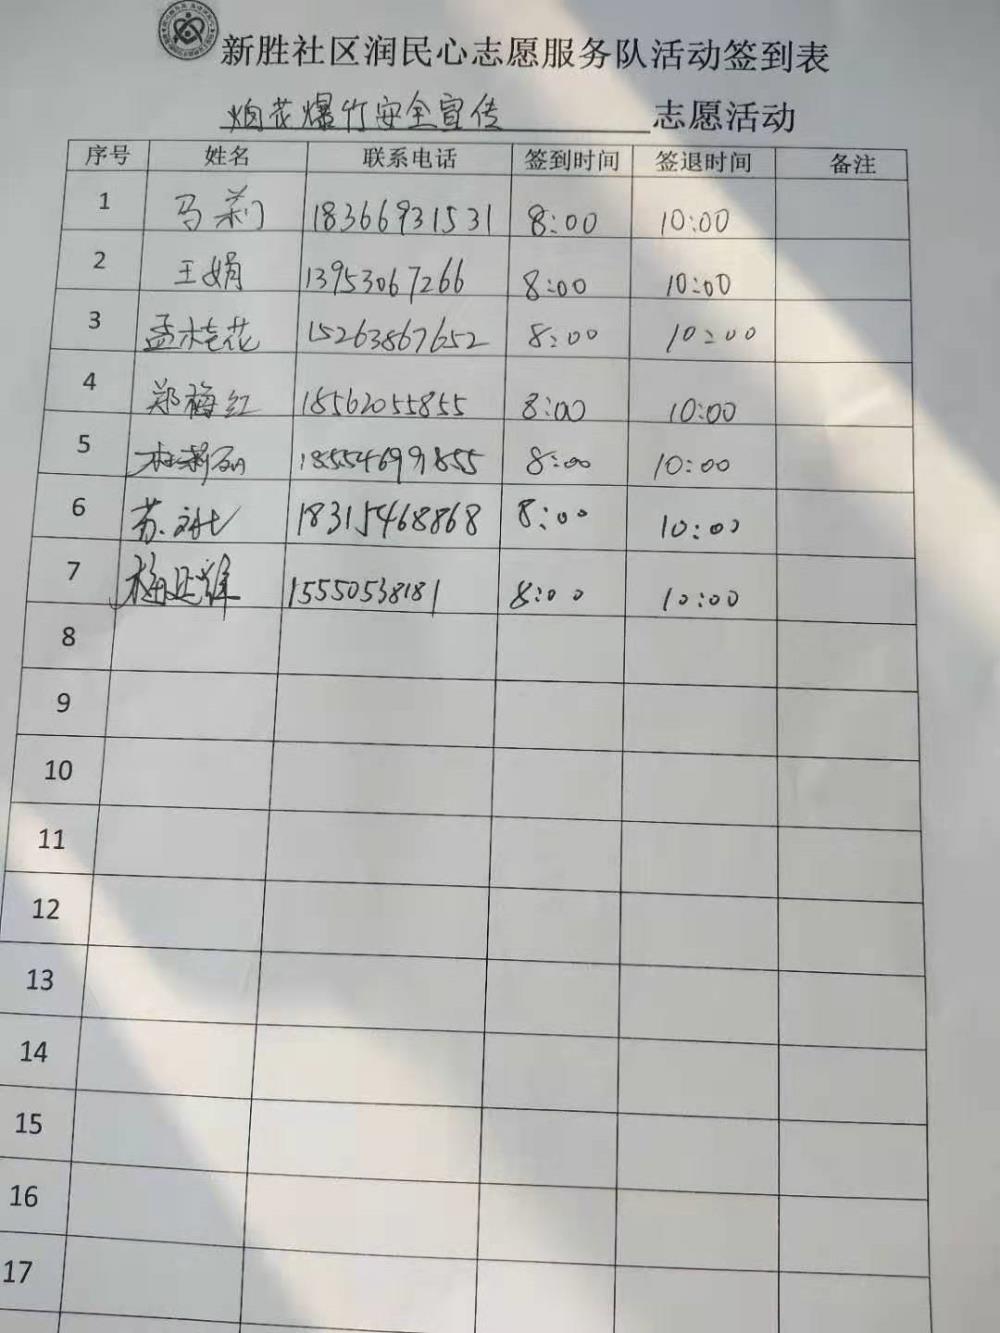 新胜社区润民心志愿服务队活动签到表
烟花爆竹安全宣传 志愿活动
序号 姓名 联系电话 签到时间 签退时间 备注
1 马莉 18366931531 8:00 10:00
2 王娟 13953067266 8:00 10:00
3 孟桂花 15263867652 8:00 10:00
4 郑梅红 18562055855 8:00 10:00
5 杜莉 18554699855 8:00 10:00
6 苏 18315468868 8:00 10:00
7 梅 15550538181 8:00 10:00
8
9
10
11
12
13
14
15
16
17